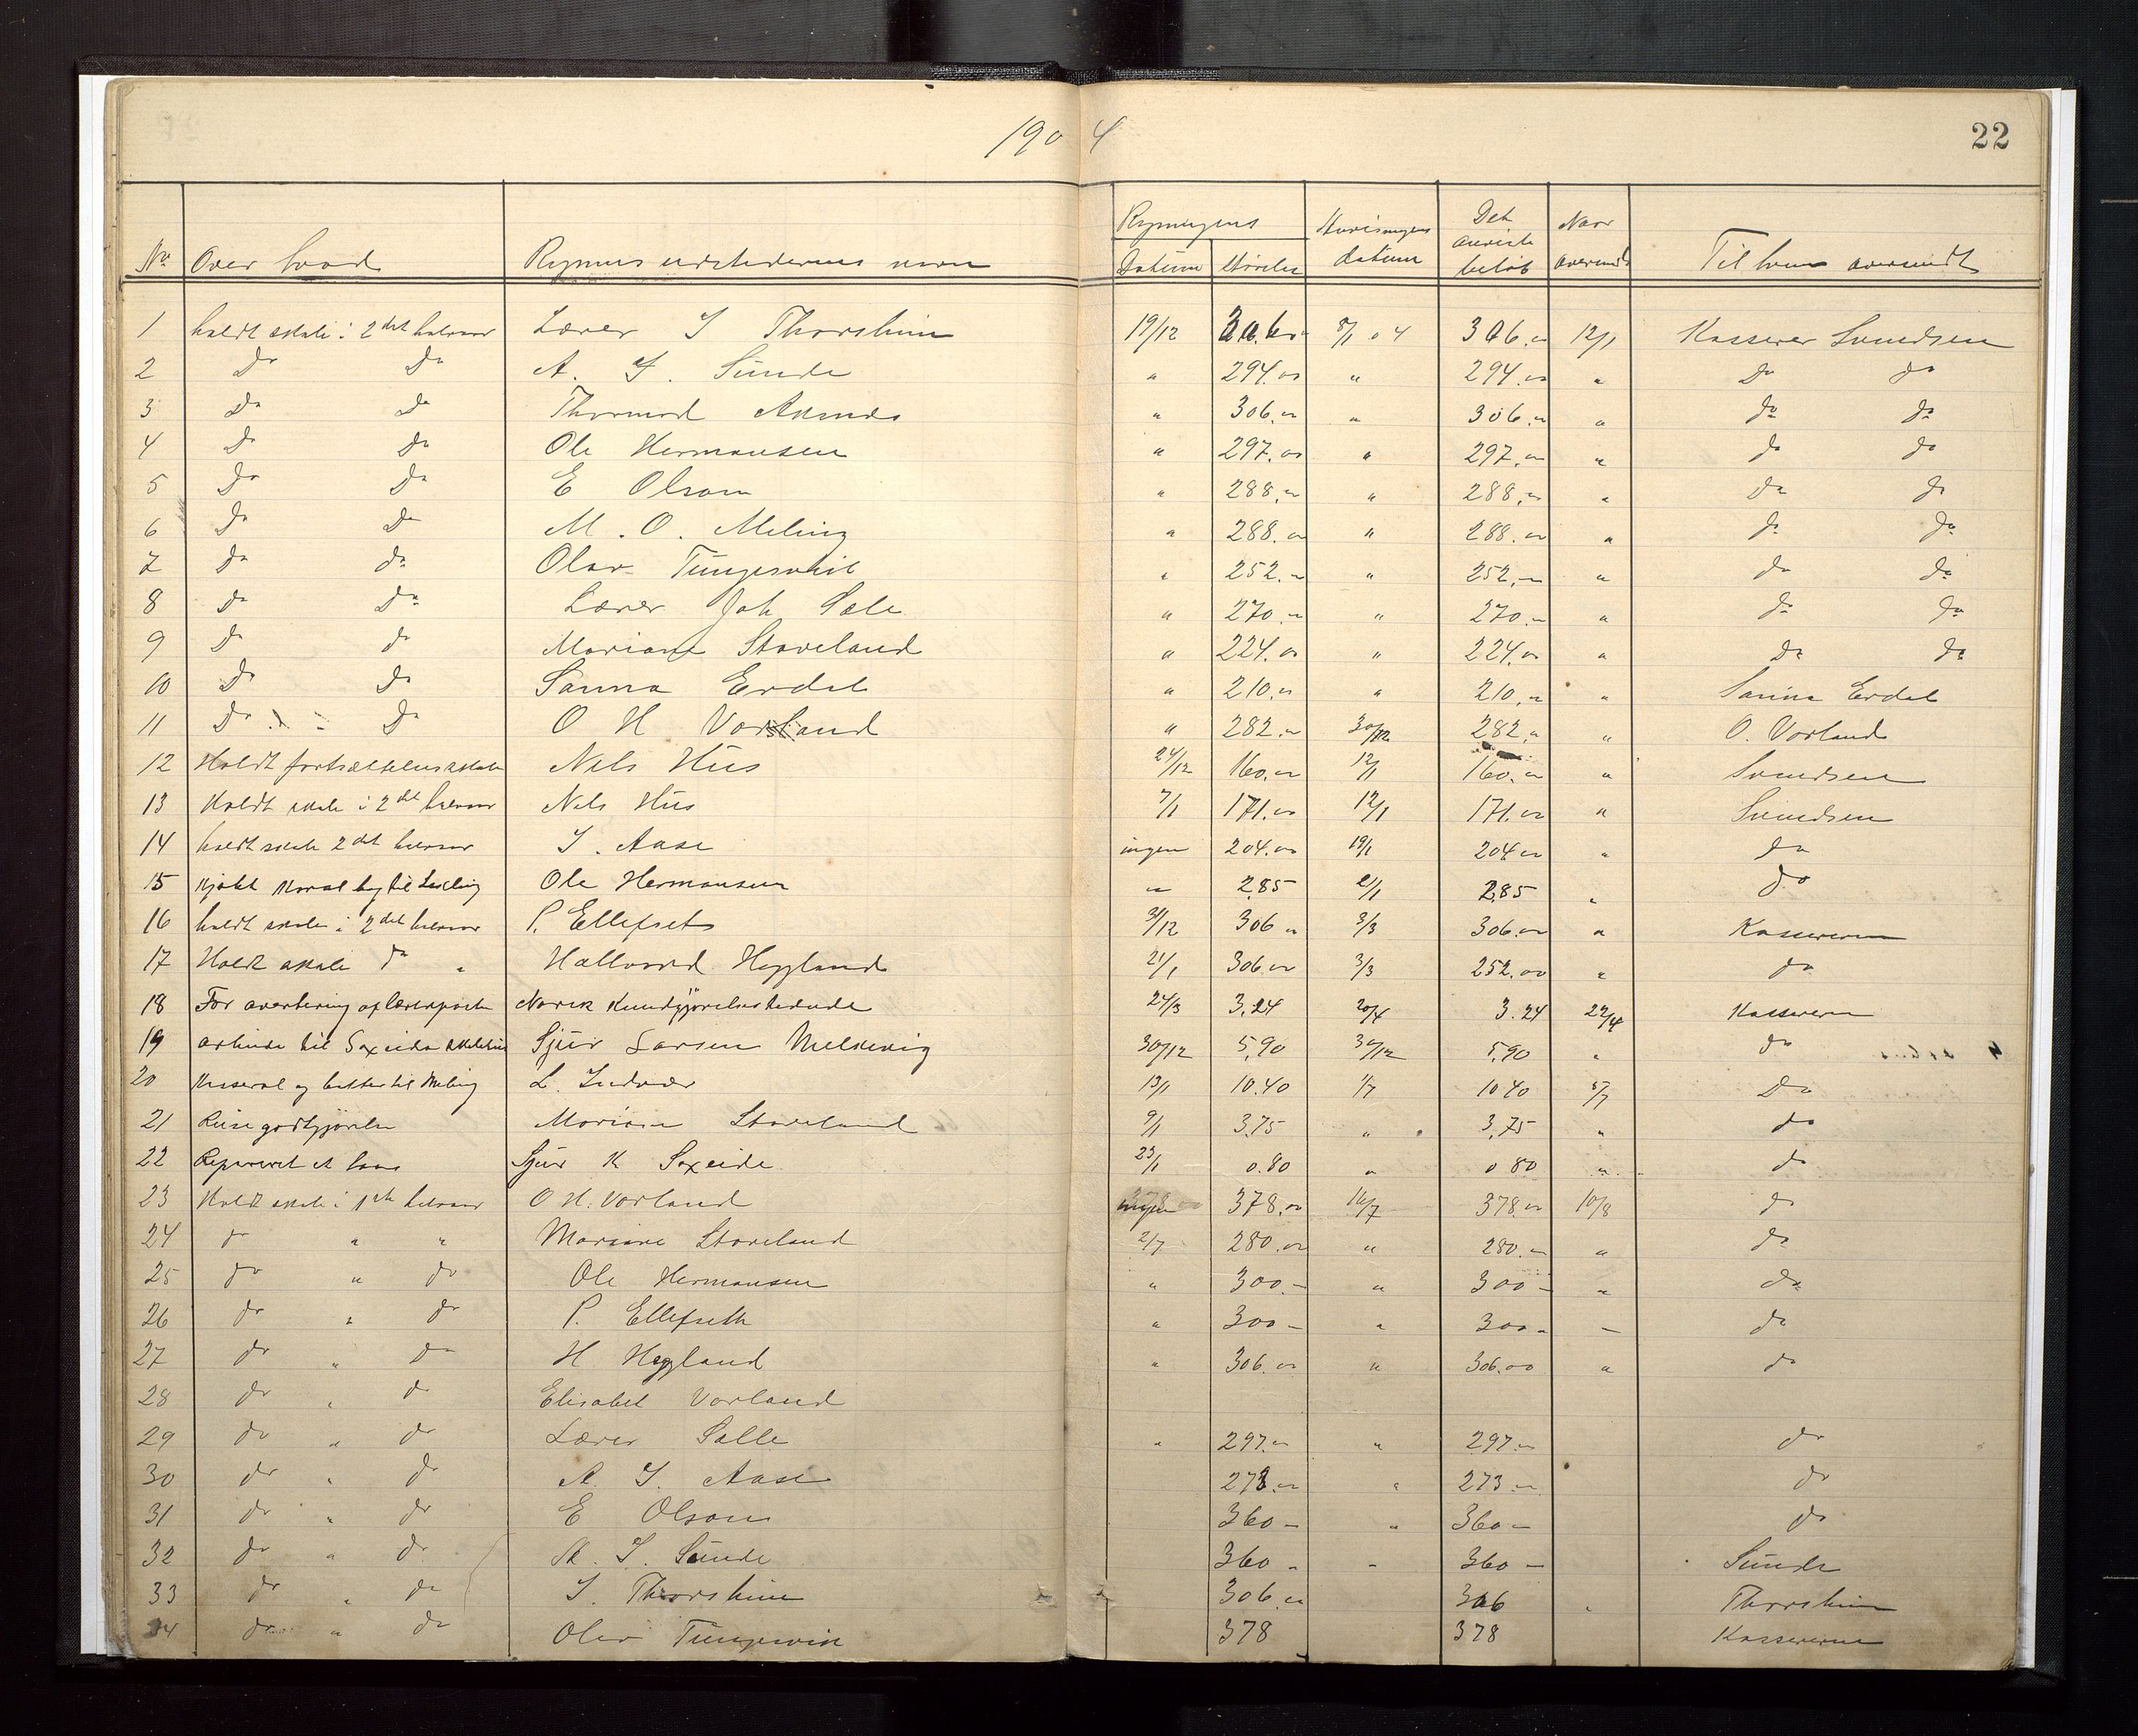 1904
22
No Over hvad Regnings udstederens navn Regningens Datum Størelse Anvisningens datum Det anviste beløb Naar oversendt Til hvem oversendt
1 holdt skole i 2det halvaar Lærer I Thorsheim 19/12 306.00 8/1 04 306.00 12/1 Kasserer Svendsen
2 Do Do A. I. Sunde " 294.00 " 294.00 " Do do
3 Do Do Thormod Aksnes " 306.00 " 306.00 " do do
4 Do Do Ole Hermansen " 297.00 " 297.00 " do do
5 Do Do E Olson " 288.00 " 288.00 " Do do
6 Do Do M. O. Meling " 288.00 " 288.00 " do do
7 Do do Olav Tungesvik " 252.00 " 252.00 " do do
8 Do Do Lærer Joh Sæle " 270.00 " 270.00 " do do
9 Do do Mariane Staveland " 224.00 " 224.00 " Do do
10 Do do Sanna Erdal " 210.00 " 210.00 " Sanna Erdal
11 Do " Do O H Vorland " 282.00 30/12 282.00 " O. Vorland
12 Holdt fortsættelsesskole Nils Hus 24/12 160.00 12/1 160.00 " Svendsen
13 Holdt skole i 2det halvaar Nils Hus 7/1 171.00 12/1 171.00 " Svendsen
14 holdt skole 2det halvaar I. Aase ingen 204.00 19/1 204.00 " do
15 Kjøbt Koral bog til Ole Hermansen " 2.85 2/1 2.85 " do
16 holdt skole i 2det halvaar P. Ellefset 31/12 306 " 3/3 306.00 " Kassereren
17 Holdt skole do " Hallvard Hegland 21/1 306.00 3/3 252.00 " do
18 For avertering af lærerposter Norsk Kundgjørelsestidende 24/3 3.24 20/4 3.24 22/4 Kassereren
19 arbeide til Saxeide skolehus Sjur Larsen Melkevig 30/12 5,90 30/12 5,90 " do
20 og til Meling L. 13/1 10.40 1/7 10 40 5/7 Do
21 Reisegodtgjørelse Mariane Staveland 9/1 3,75 " 3,75 " do
22 Repareret et laas Sjur K Saxeide 23/1 0.80 " 0 80 " do
23 Holdt skole i 1ste halvaar O H. Vorland ingen 378.00 16/7 378.00 10/8 do
24 do " " Mariane Staveland 2/7 280.00 " 280.- " do
25 do " do Ole Hermansen " 300.- " 300 - " do
26 do " do P. Ellefseth " 300 - " 300 - - do
27 do " do H Hegland " 306.00 " 306.00 " do
28 do " do Elisabet Vorland
29 do " do Lærer Sælle " 297.- " 297.- do
30 do " do A. I. Aase 273.- " 273 - do
31 do " do E Olson 360 - " 360 - do
32 do " do A. I. Sunde 360 - - 360 - Sunde
33 do " do I. Thorsheim 306.00 306 " Thorsheim
34 do " do Olav Tungesvik 378 378 Kassereren